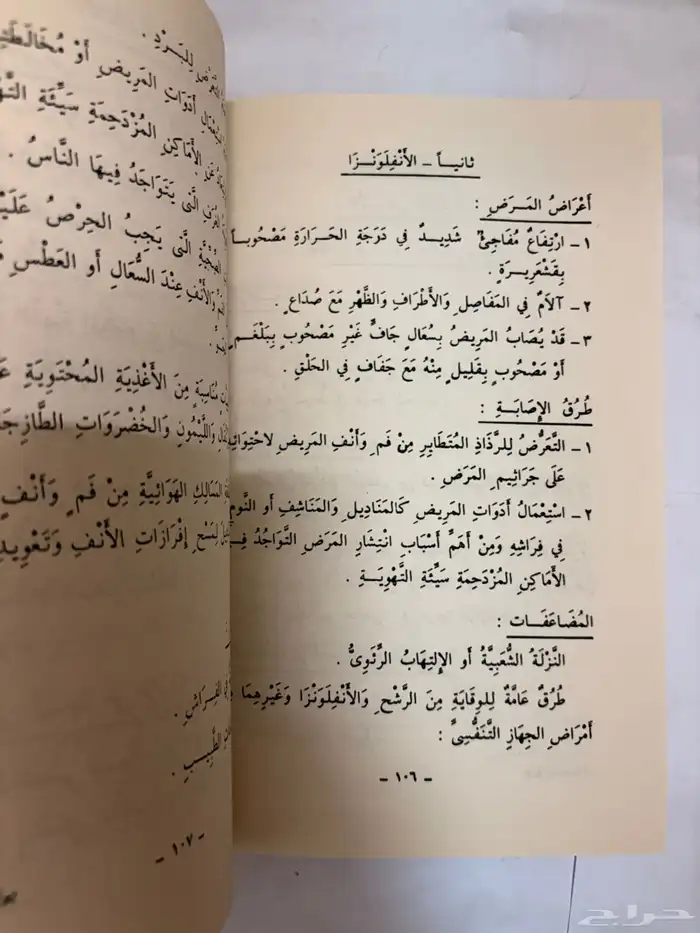 ثانيـاً - الأَنْفِلَوَنْـزَا
أَعْرَاضُ المَـرَضِ :
١ - ارْتِفَاعٌ مُفَاجِئٌ شَدِيـدٌ فِي دَرَجَةِ الحَرَارَةِ مَصْحُوبـاً
بِقَشْعَرِيـرَةٍ .
٢ - آلاَمٌ فِي المَفَاصِلِ وَالأَطْرَافِ وَالظَّهْرِ مَعَ صُدَاعٍ .
٣ - قَدْ يُصَابُ المَرِيضُ بِسُعَالٍ جَافٍّ غَيْرِ مَصْحُوبٍ بِبَلْغَمٍ
أَوْ مَصْحُوبٍ بِقَلِيلٍ مِنْهُ مَعَ جَفَافٍ فِي الحَلْقِ .
طُرُقُ الإِصَابَـةِ :
١ - التَّعَرُّضُ لِلرَّذَاذِ المُتَطَايِرِ مِنْ فَمِ وَأَنْفِ المَرِيضِ لاحْتِوَائِـ
عَلَى جَرَاثِيمِ المَرَضِ .
٢ - اسْتِعْمَالُ أَدَوَاتِ المَرِيضِ كَالمَنَادِيلِ وَالمَنَاشِفِ أَو النَّوْمِ
فِي فِرَاشِهِ وَمِنْ أَهَمِّ أَسْبَابِ انْتِشَارِ المَرَضِ التَّوَاجُدُ فِـي
الأَمَاكِنِ المُزْدَحِمَةِ سَيِّئَةِ التَّهْوِيَـةِ .
المُضَاعَفَـات :
النَّزْلَةُ الشُّعَبِيَّةُ أَو الإِلتِهَابُ الرِّئَوِىُّ .
طُرُقٌ عَامَّةٌ لِلوِقَايَةِ مِنَ الرَّشْحِ وَالأَنْفِلَوَنْزَا وَغَيْرِهِمَا
أَمْرَاضِ الجِهَازِ التَّنَفُّسِىِّ :
- ١٠٦ -
لِلبَـرْدِ .
أَدَوَاتِ المَرِيضِ أَوْ مُخَالَطَتِـ
الأَمَاكِنِ المُزْدَحِمَةِ سَيِّئَةِ التَّهْـ
الَّتِى يَتَوَاجَدُ فِيهَا النَّاسُ .
الَّتِى يَجِبُ الحِرْصُ عَلَيْـ
وَالأَنْفِ عِنْدَ السُّعَالِ أَو العَطْسِ
مُنَاسِبَةٍ مِنَ الأَغْذِيَةِ المُحْتَوِيَةِ
وَاللَّيْمُونِ وَالخُضْرَوَاتِ الطَّازِجَـ
المَسَالِكِ الهَوَائِيَّةِ مِنْ فَمٍ وَأَنْفٍ
لِمَسْحِ إِفْرَازَاتِ الأَنْفِ وَتَعْوِيدِ
الفِـرَاشِ .
الطَّبِيـبِ .
- ١٠٧ -
حراج